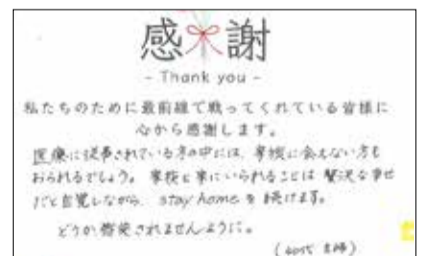 感謝
- Thank you -
私たちのために最前線で戦ってくれている皆様に
心から感謝します。
医療に従事されている方の中には、家族に会えない方も
おられるでしょう。家族と家にいられることは贅沢な幸せ
だと自覚しながら、stay home を続けます。
どうか感染されませんように。
(40代 主婦)